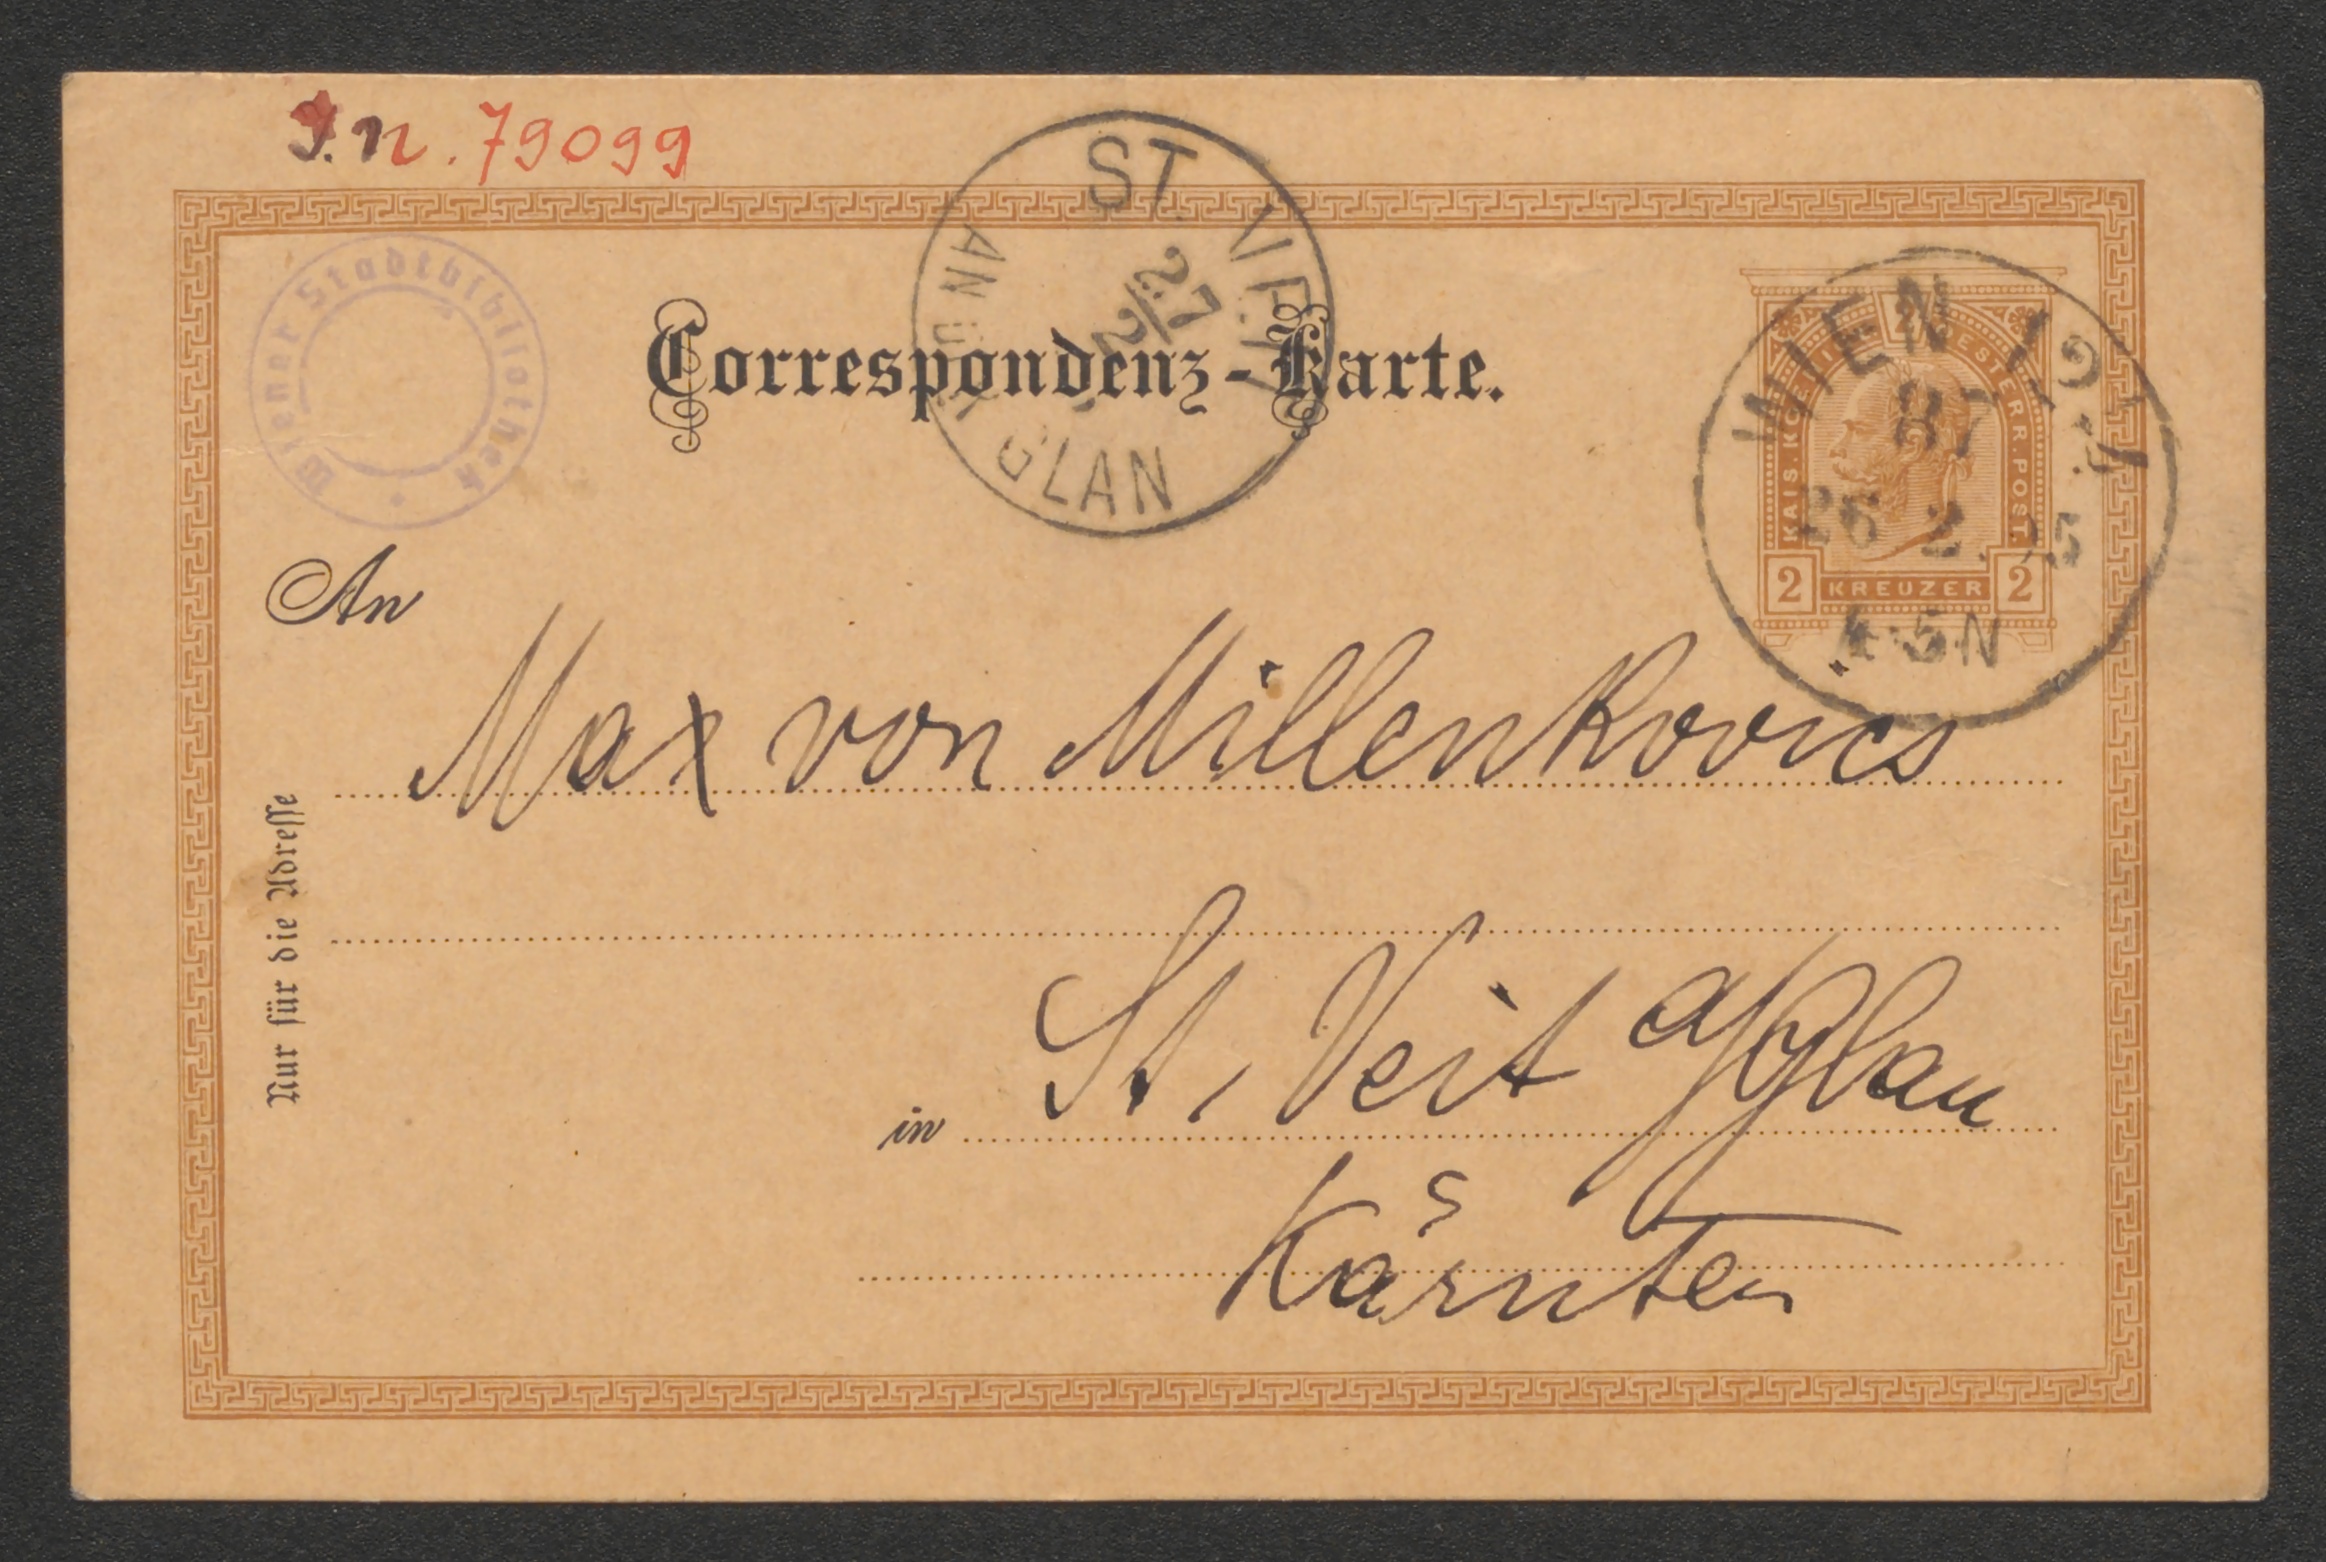 J.N. 79099
Wiener Stadtbibliothek
ST. VEIT
AN DER GLAN
27/2
Correspondenz-Karte.
KAIS. KOENIGL. OESTERR. POST.
2 KREUZER 2
WIEN
87
26 2. 95
4-5N
An
Max von Millenkovics
in St. Veit a/Glan
Kärnten
Nur für die Adresse